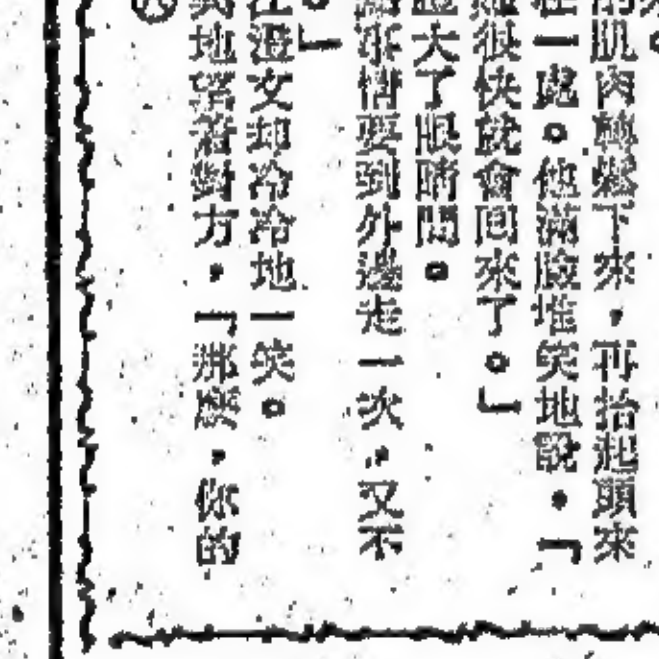 的肌肉轉鬆下來，再抬起頭來
在一處。他滿臉堆笑地說，「
很快就會回來了。」
大了眼睛問。
事情要到外邊走一次，又不
」
江澄女却冷冷地一笑。
地望着對方，「那麽，你的